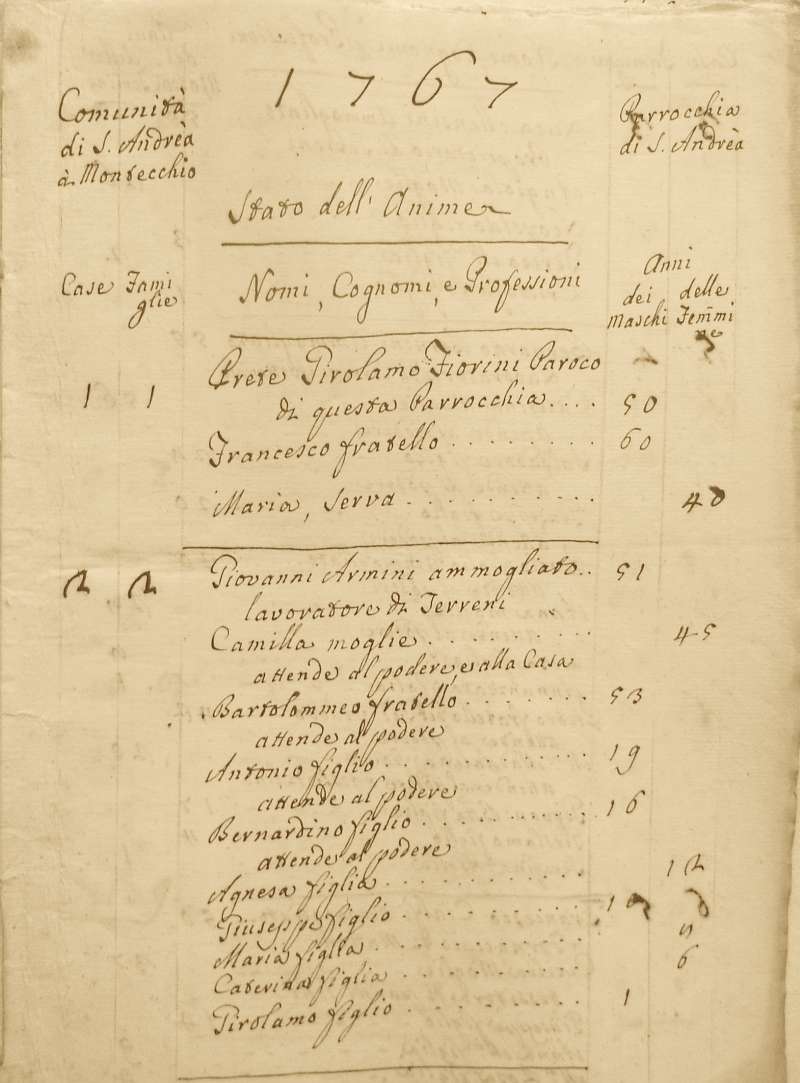 1767
Comunità
di S. Andrèa
à Montecchio
Parrocchia
di S. Andrèa
Stato dell' Anime
Case Fami
glie
Nomi, Cognomi, e Professioni
Anni
dei delle
Maschi Fem̄mi
ne
1 1 Prete Girolamo Fiorini Paroco
di questa Parrocchia.... 50
Francesco fratello ........ 60
Maria, Serva .......... 40
2 2 Giovanni Armini ammogliato.. 51
lavoratore di Terreni
Camilla moglie .......... 45
attende al podere, e alla Casa
Bartolommeo fratello ....... 53
attende al podere
Antonio figlio ............ 19
attende al podere
Bernardino figlio ........... 16
attende al podere
Agnesa figlia ............ 12
Giuseppe figlio .......... 10
Maria figlia ............
Caterina figlia .......... 6
Girolamo figlio .......... 1